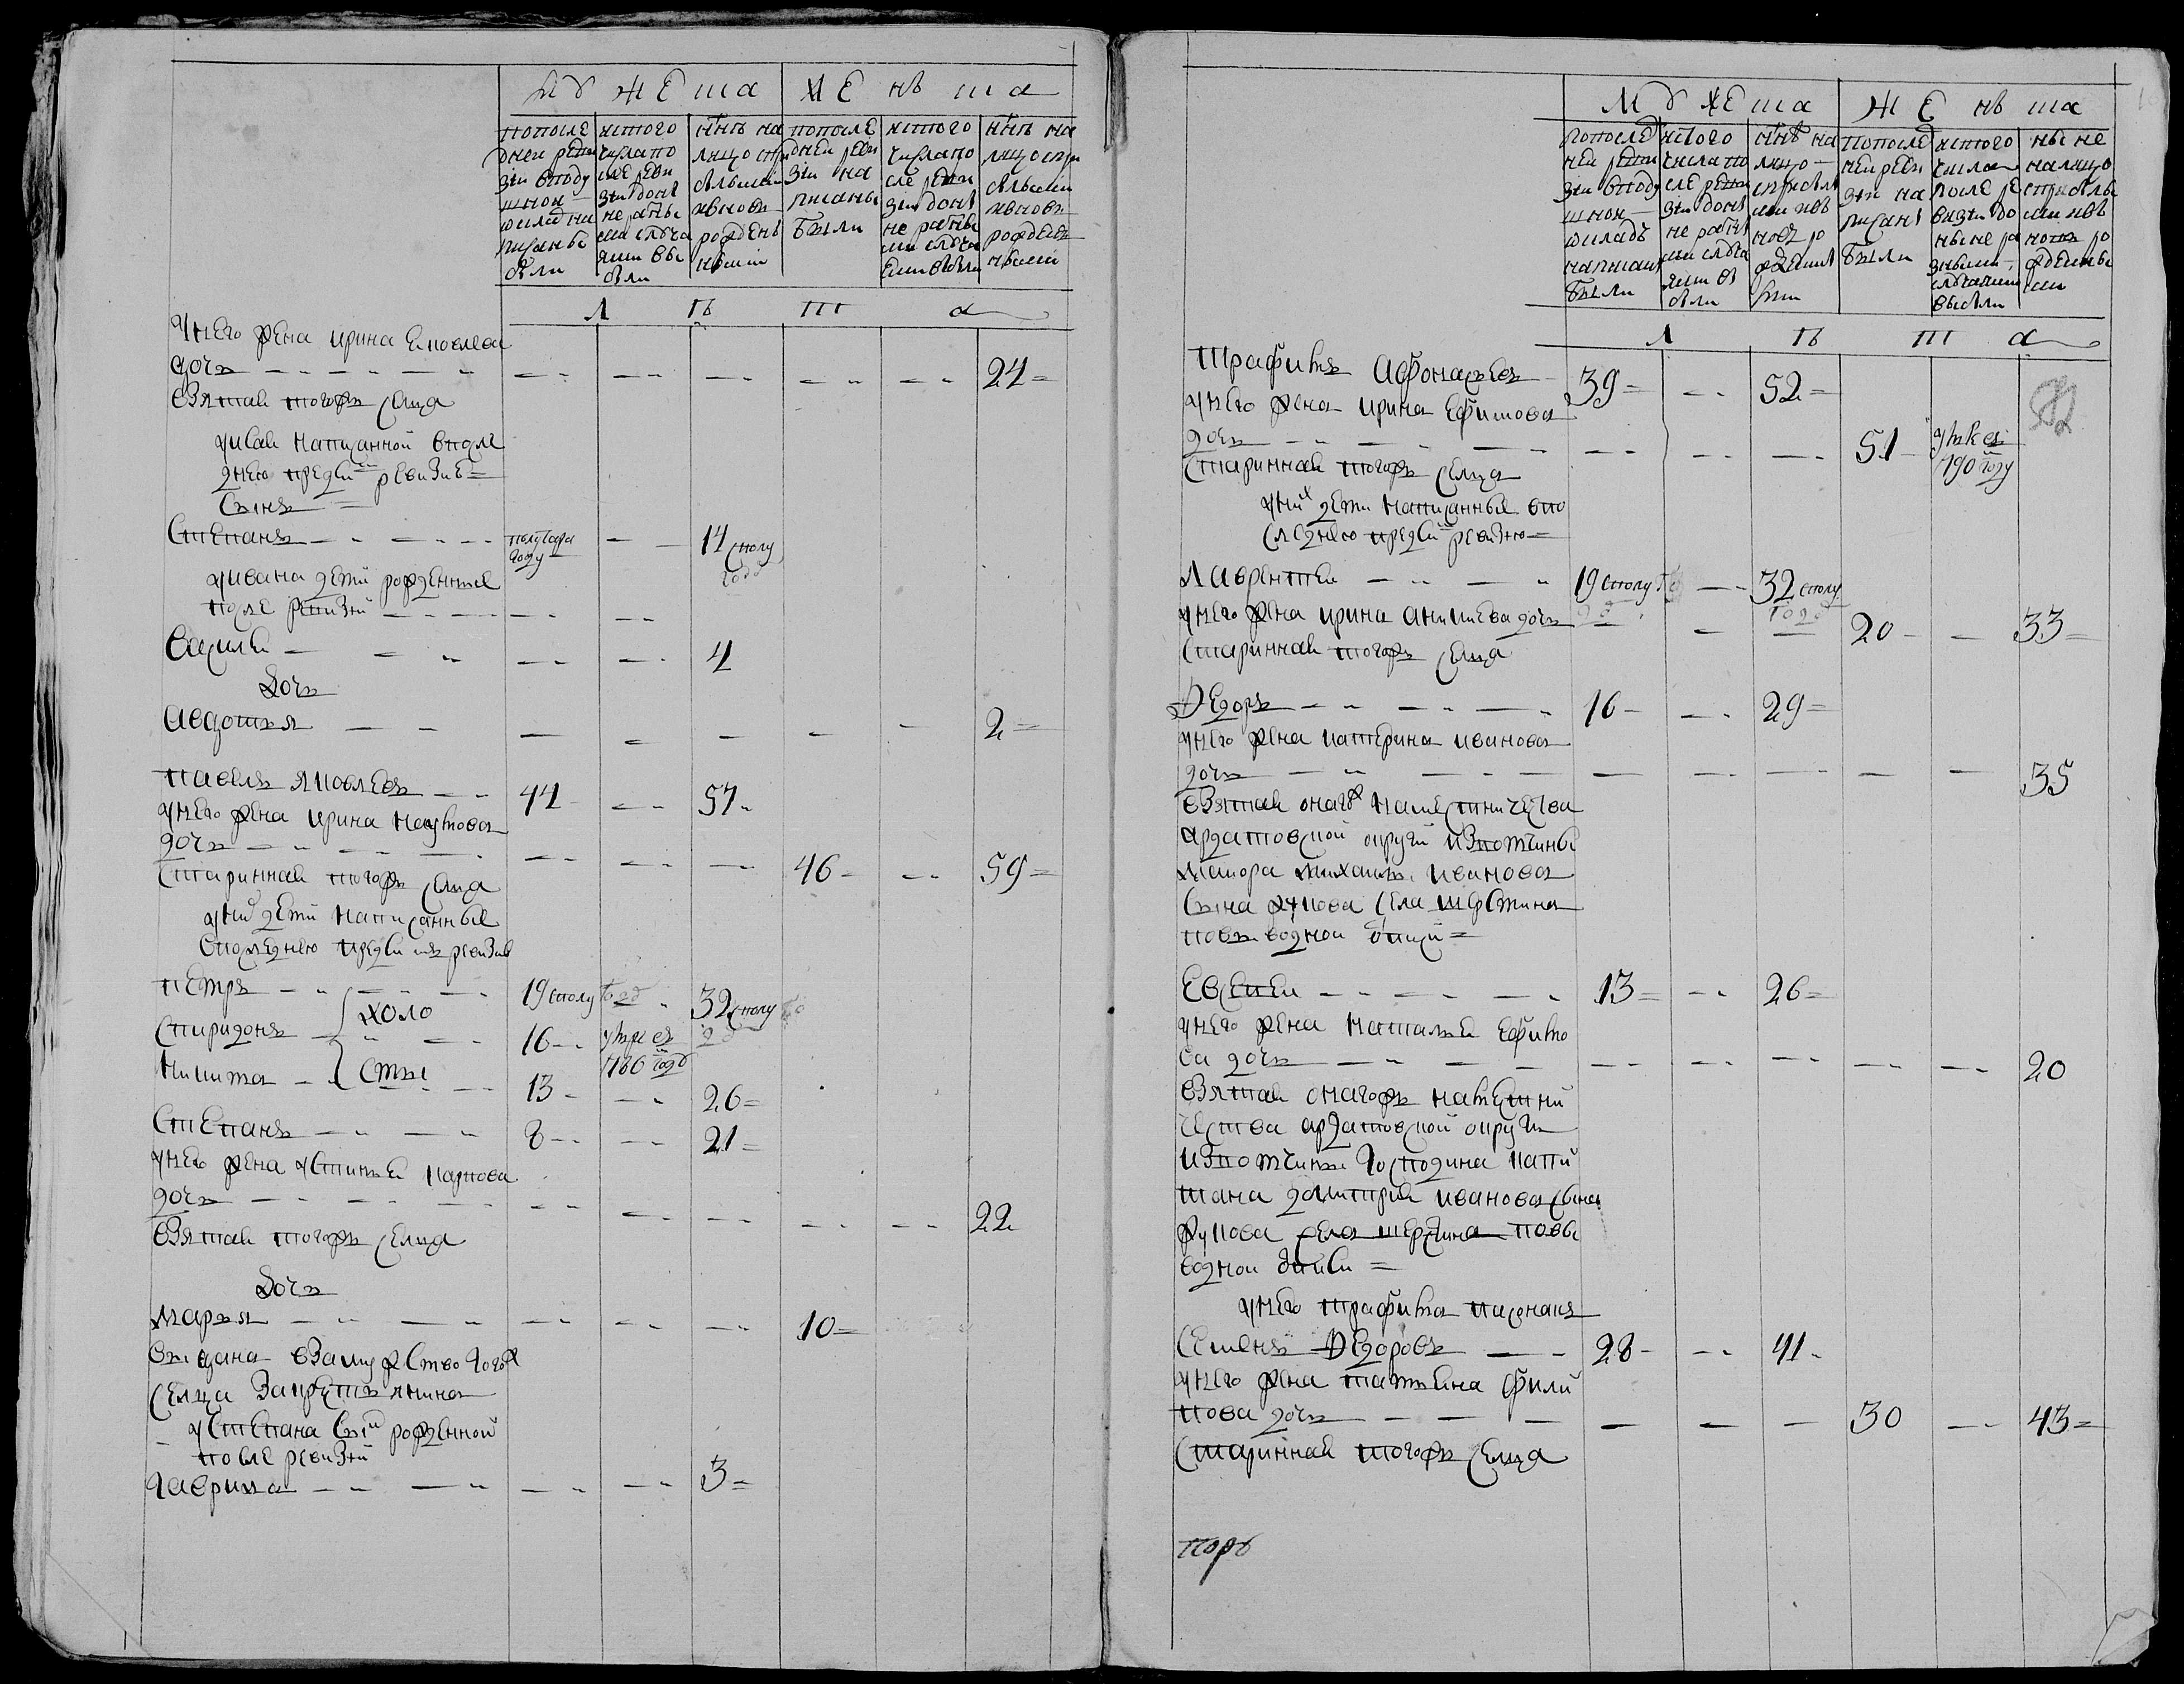 МУЖЕСКА ЖЕНСКА
попосле дней ревизии вподушной окладъ написаны были
изтого числа после ревизии до ныне разными случаями выбыли
нынъ на лицо съ прибылыми и вновь рожденными
попосле дней ревизии написаны были
изтого числа после ревизии до ныне разными случаями выбыли
нынъ на лицо съ прибылыми и вновь рожденными
Л Ѣ Т А
Унего жена ирина
дочь 24
взятая тогожъ селца
уиван написанной впосле
днею пред сей ревизию
сынъ
Степанъ полтара году 14 сполу году
уивана дети рожденные
после ревизии
василей 4
Дочь
авдотья 2
павелъ яковлевъ 44 57
унего жена ирина наумова
дочь 46 59
старинная тогожъ селца
уних дети написанные
впоследнею пред сей ревизию
петръ 19 сполугод 32 сполугод
холостые
спиридонъ 16 умре въ 786 году
никита 13 26
Степанъ 8 21
унего жена устинья карпова
дочь 22
взятая тогожъ селца
Дочь
марья 10
выдана взамужство тогож
селца за крестьянина
устепана сынъ рожденной
после ревизии
гаврила 3
МУЖЕСКА ЖЕНСКА
попоследней ревизии вподушной окладъ написаны были
изтого числа после ревизии до ныне разными случаями выбыли
нынъ на лицо съ прибылыми и вновь рожденными
попосле ней ревизии написаны были
изтого числа после ревизии до ныне разными случаями выбыли
ныне налицо съ прибылыми и вновь рожденными
Л Ѣ Т А
Трафимъ афонасьевъ 39 52
унего жена ирина ефимова
дочь 51 умре въ 790 году
старинная тогожъ селца
уних дети написанные впо
следнею пред сей ревизию
Лаврентей 19 сполугод 32 сполугод
унего жена ирина дочь 20 33
старинная тогожъ селца
Федоръ 16 29
унего жена катерина иванова
дочь 35
взятая оногож наместничества
ардатовской округи извотчины
маиора михаилы иванова
сына жукова села шерстина
повыводной
Евсей 13 26
унего жена наталья ефимо
ва дочь 20
взятая оногожъ наместни
чества ардатовской округи
извотчины господина капи
тана дмитрия иванова сына
жукова села шерстина повы
водной
унего трафима пасонакъ
Семенъ Федоровъ 28 41
унего жена татьяна фили
пова дочь 30 43
старинная тогожъ селца